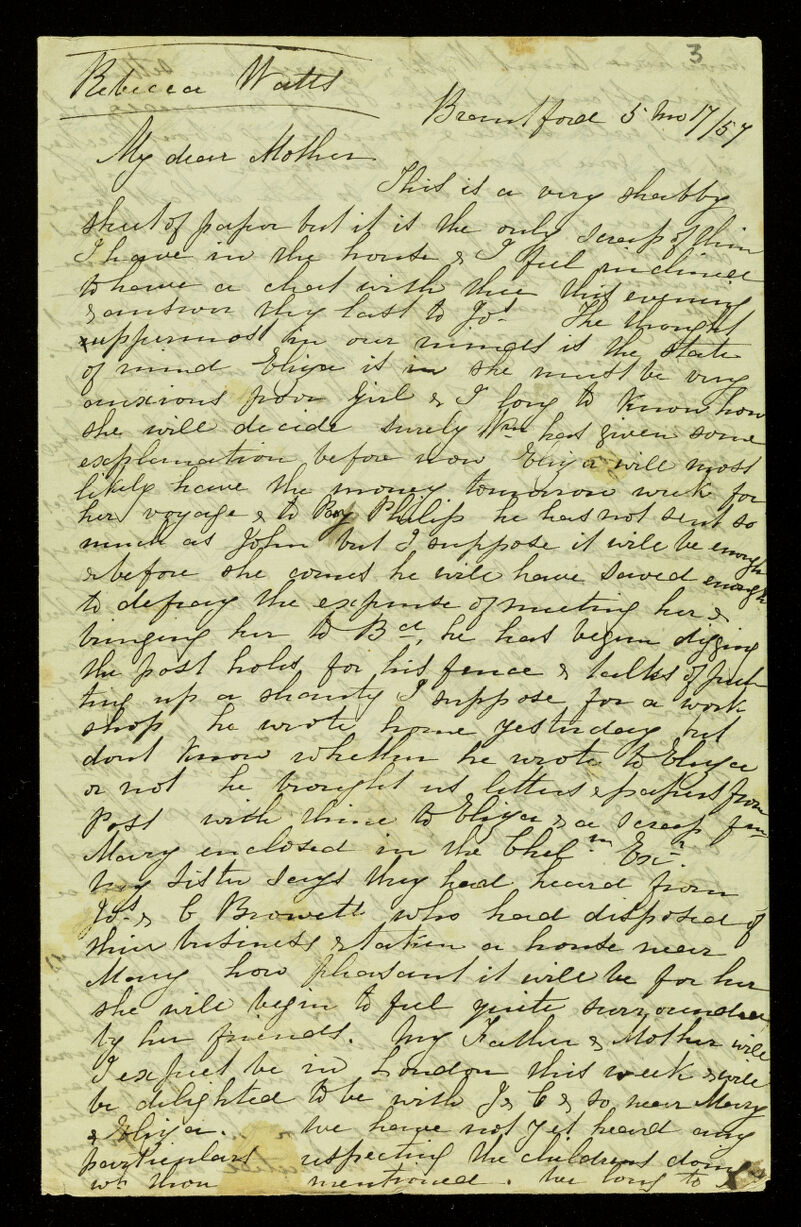 3
Rebecca Watts
Brantford 5 Mo 17/57
My dear Mother
This is a very shabby
sheet of paper but it is the only scrap of thin
I have in the house & I feel inclined
to have a chat with thee this evening
& answer thy last to Jos. The thought
uppermost in our minds is the state
of mind Eliza is in she must be very
anxious poor girl & I long to know how
she will decide surely Wm has given some
explanation before now Eliza will most
likely have the money tomorrow week for
her voyage & to Pay Philip he has not sent so
much as John but I suppose it will be enough
& before she comes he will have saved enough
to defray the expense of meeting her &
bringing her to Bd, he has begun digging
the post holes for his fence & talks of put
ting up a shanty I suppose for a work
shop he wrote home yesterday but
dont know whether he wrote to Eliza
or not he brought us letters & papers from
Post with thine to Eliza & a scrap fm
Mary enclosed in the Chelm
My sister says they had heard from
Jos & C Browett who had disposed of
their business & taken a house near
Mary how pleasant it will be for her
she will begin to feel quite surrounded
by her friends. My Father & Mother will
I expect be in London this week & will
be delighted to be with J & C & so near Mary
& Eliza. We have not yet heard any
particulars respecting the childrens doing
wh thou mentioned. We long to